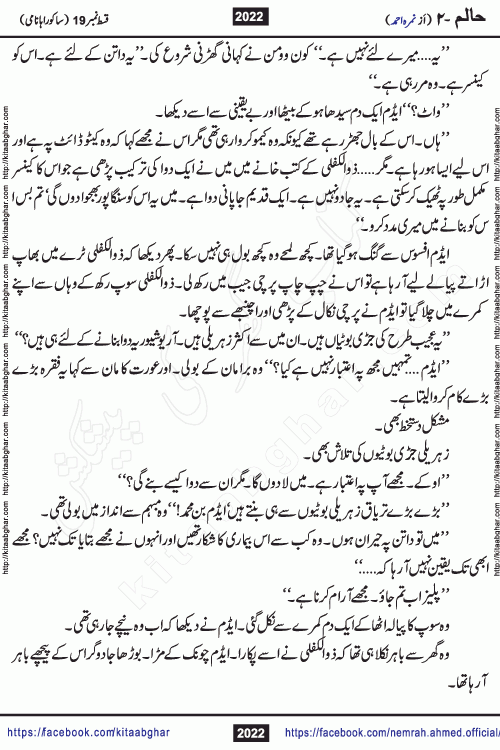 حالم -۲ (از نمرہ احمد) 2022 قسط نمبر 19 (ساکورا ہانامی)
’’یہ....میرے لئے نہیں ہے۔‘‘ کون وومن نے کہانی گھڑنی شروع کی۔ ’’یہ داتن کے لئے ہے۔ اس کو
کینسر ہے۔ وہ مر رہی ہے۔‘‘
’’واٹ؟‘‘ ایڈم ایک دم سیدھا ہو کے بیٹھا اور بے یقینی سے اسے دیکھا۔
’’ہاں۔ اس کے بال جھڑ رہے تھے کیونکہ وہ کیمو کروا رہی تھی مگر اس نے مجھے کہا کہ وہ کیٹو ڈائٹ پہ ہے اور
اس لیے ایسا ہو رہا ہے۔ مگر.....ذوالکفلی کے کتب خانے میں میں نے ایک دوا کی ترکیب پڑھی ہے جو اس کا کینسر
مکمل طور پہ ٹھیک کر سکتی ہے۔ یہ جادو نہیں ہے۔ ایک قدیم جاپانی دوا ہے۔ میں یہ اس کو سنگاپور بھجوا دوں گی‘ تم بس ا
س کو بنانے میں میری مدد کرو۔‘‘
ایڈم افسوس سے گنگ ہو گیا تھا۔ کچھ لمحے وہ کچھ بول ہی نہیں سکا۔ پھر دیکھا کہ ذوالکفلی ٹرے میں بھاپ
اڑاتے پیالے لیے آ رہا ہے تو اس نے چپ چاپ پرچی جیب میں رکھ لی۔ ذوالکفلی سوپ رکھ کے وہاں سے اپنے
کمرے میں چلا گیا تو ایڈم نے پرچی نکال کے پڑھی اور اچنبھے سے پوچھا۔
’’یہ عجیب طرح کی جڑی بوٹیاں ہیں۔ ان میں سے اکثر زہریلی ہیں۔ آر یو شیور یہ دوا بنانے کے لئے ہی ہیں؟‘‘
’’ایڈم....تمہیں مجھ پہ اعتبار نہیں ہے کیا؟‘‘ وہ برا مان کے بولی۔ اور عورت کا مان سے کہا یہ فقرہ بڑے
بڑے کام کروا لیتا ہے۔
مشکل دستخط بھی۔
زہریلی جڑی بوٹیوں کی تلاش بھی۔
’’اوکے۔ مجھے آپ پہ اعتبار ہے۔ میں لا دوں گا۔ مگر ان سے دوا کیسے بنے گی؟‘‘
’’بڑے بڑے تریاق زہریلی بوٹیوں سے ہی بنتے ہیں‘ ایڈم بن محمد!‘‘ وہ مبہم سے انداز میں بولی تھی۔
’’میں تو داتن پہ حیران ہوں۔ وہ کب سے اس بیماری کا شکار تھیں اور انہوں نے مجھے بتایا تک نہیں؟ مجھے
ابھی تک یقین نہیں آ رہا کہ.....‘‘
’’پلیز اب تم جاؤ۔ مجھے آرام کرنا ہے۔‘‘
وہ سوپ کا پیالہ اٹھا کے ایک دم کمرے سے نکل گئی۔ ایڈم نے دیکھا کہ اب وہ نیچے جا رہی تھی۔
وہ گھر سے باہر نکلا ہی تھا کہ ذوالکفلی نے اسے پکارا۔ ایڈم چونک کے مڑا۔ بوڑھا جادوگر اس کے پیچھے باہر
آ رہا تھا۔
http://kitaabghar.com http://kitaabghar.com http://kitaabghar.com http://kitaabghar.com
http://kitaabghar.com http://kitaabghar.com http://kitaabghar.com http://kitaabghar.com
کتاب گھر کی پیشکش
kitaabghar.com
https://facebook.com/kitaabghar 2022 https://facebook.com/nemrah.ahmed.official/